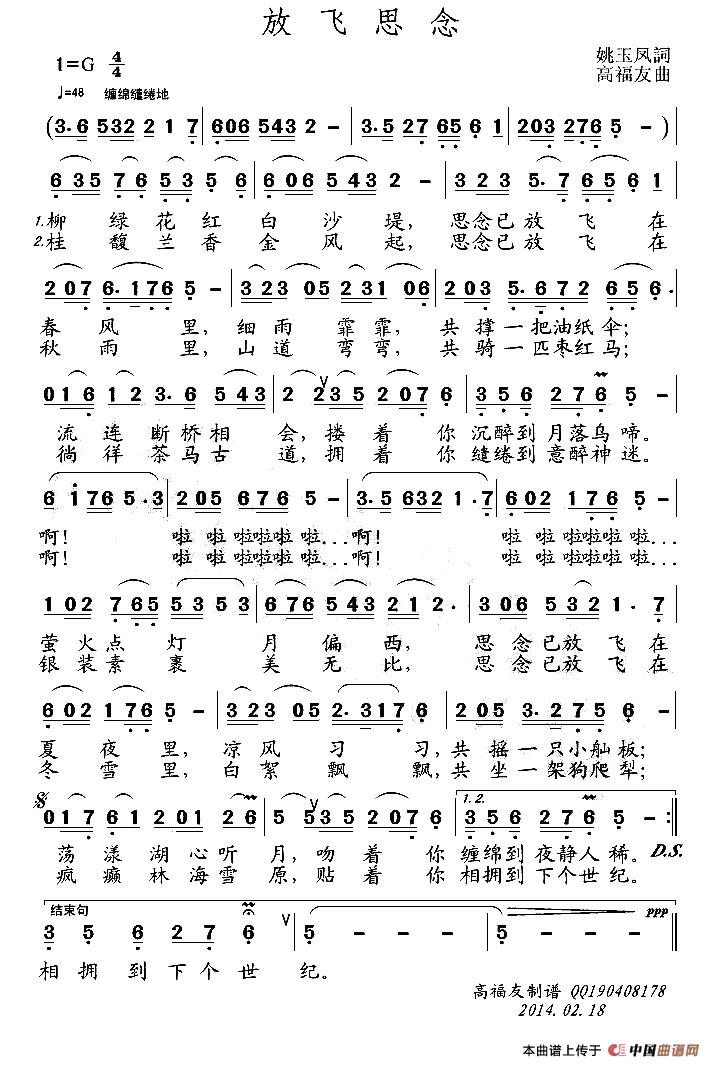 放飞思念
1=G 4/4
姚玉凤詞
高福友曲
♩=48 缠绵缱绻地
(3·6 532 2 1 7 | 606 543 2 - | 3·5 27 65 6 1 | 203 276 5 - )
6 35 76 53 5 6 | 6 06 543 2 - | 3 23 5·7 656 1
1.柳 绿 花 红 白 沙 堤, 思念已放 飞 在
2.桂 馥 兰 香 金 风 起, 思念已放 飞 在
207 6·176 5 - | 323 05 231 05 | 203 5·672 656·
春 风 里, 细 雨 霏 霏, 共 撑 一把油纸 伞;
秋 雨 里, 山 道 弯 弯, 共 骑 一匹枣红 马;
016 12 3·6 543 | 2 235 2076 | 356 276 5 -
流 连 断桥相 会, 搂 着 你 沉醉到 月落乌 啼。
徜 徉 茶马古 道, 拥 着 你 缱绻到 意醉神 迷。
6 i765·3 | 205 676 5 - | 3·5 632 1·7 | 602 176 5 -
啊! 啦 啦啦啦啦 啦...啊! 啦 啦啦啦啦 啦...
啊! 啦 啦啦啦啦 啦...啊! 啦 啦啦啦啦 啦...
102 765 5353 | 676 543 212· | 306 532 1·7
萤 火点 灯 月 偏 西, 思 念已放 飞 在
银 装素 裹 美 无 比, 思 念已放 飞 在
602 176 5 - | 323 05 2·317 6 | 205 3·275 6·
夏 夜 里, 凉 风 习 习,共 摇 一只小舢 板;
冬 雪 里, 白 絮 飘 飘,共 坐 一架狗爬 犁;
017 61 201 26 | 5 535 2076 | 1.2. 356 276 5 - :|
荡 漾 湖 心听 月, 吻 着 你 缠绵到 夜静人 稀。 D.S.
疯 癫 林 海雪 原, 贴 着 你 相拥到 下个世 纪。
结束句 ppp
3 5 6 2 7 6 | 5 - - - | 5 - - -
相 拥 到 下 个 世 纪。
高福友制谱 QQ190408178
2014.02.18
本曲谱上传于 中国曲谱网